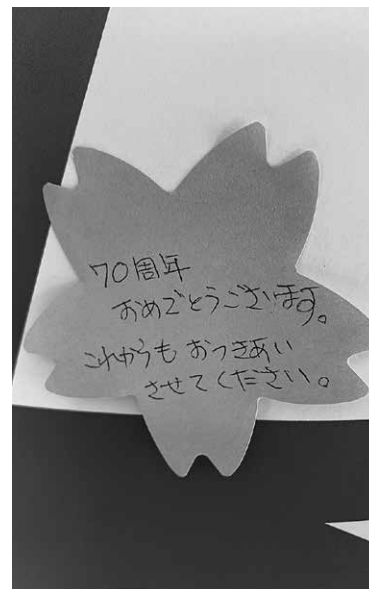 70周年
おめでとうございます。
これからも おつきあい
させてください。